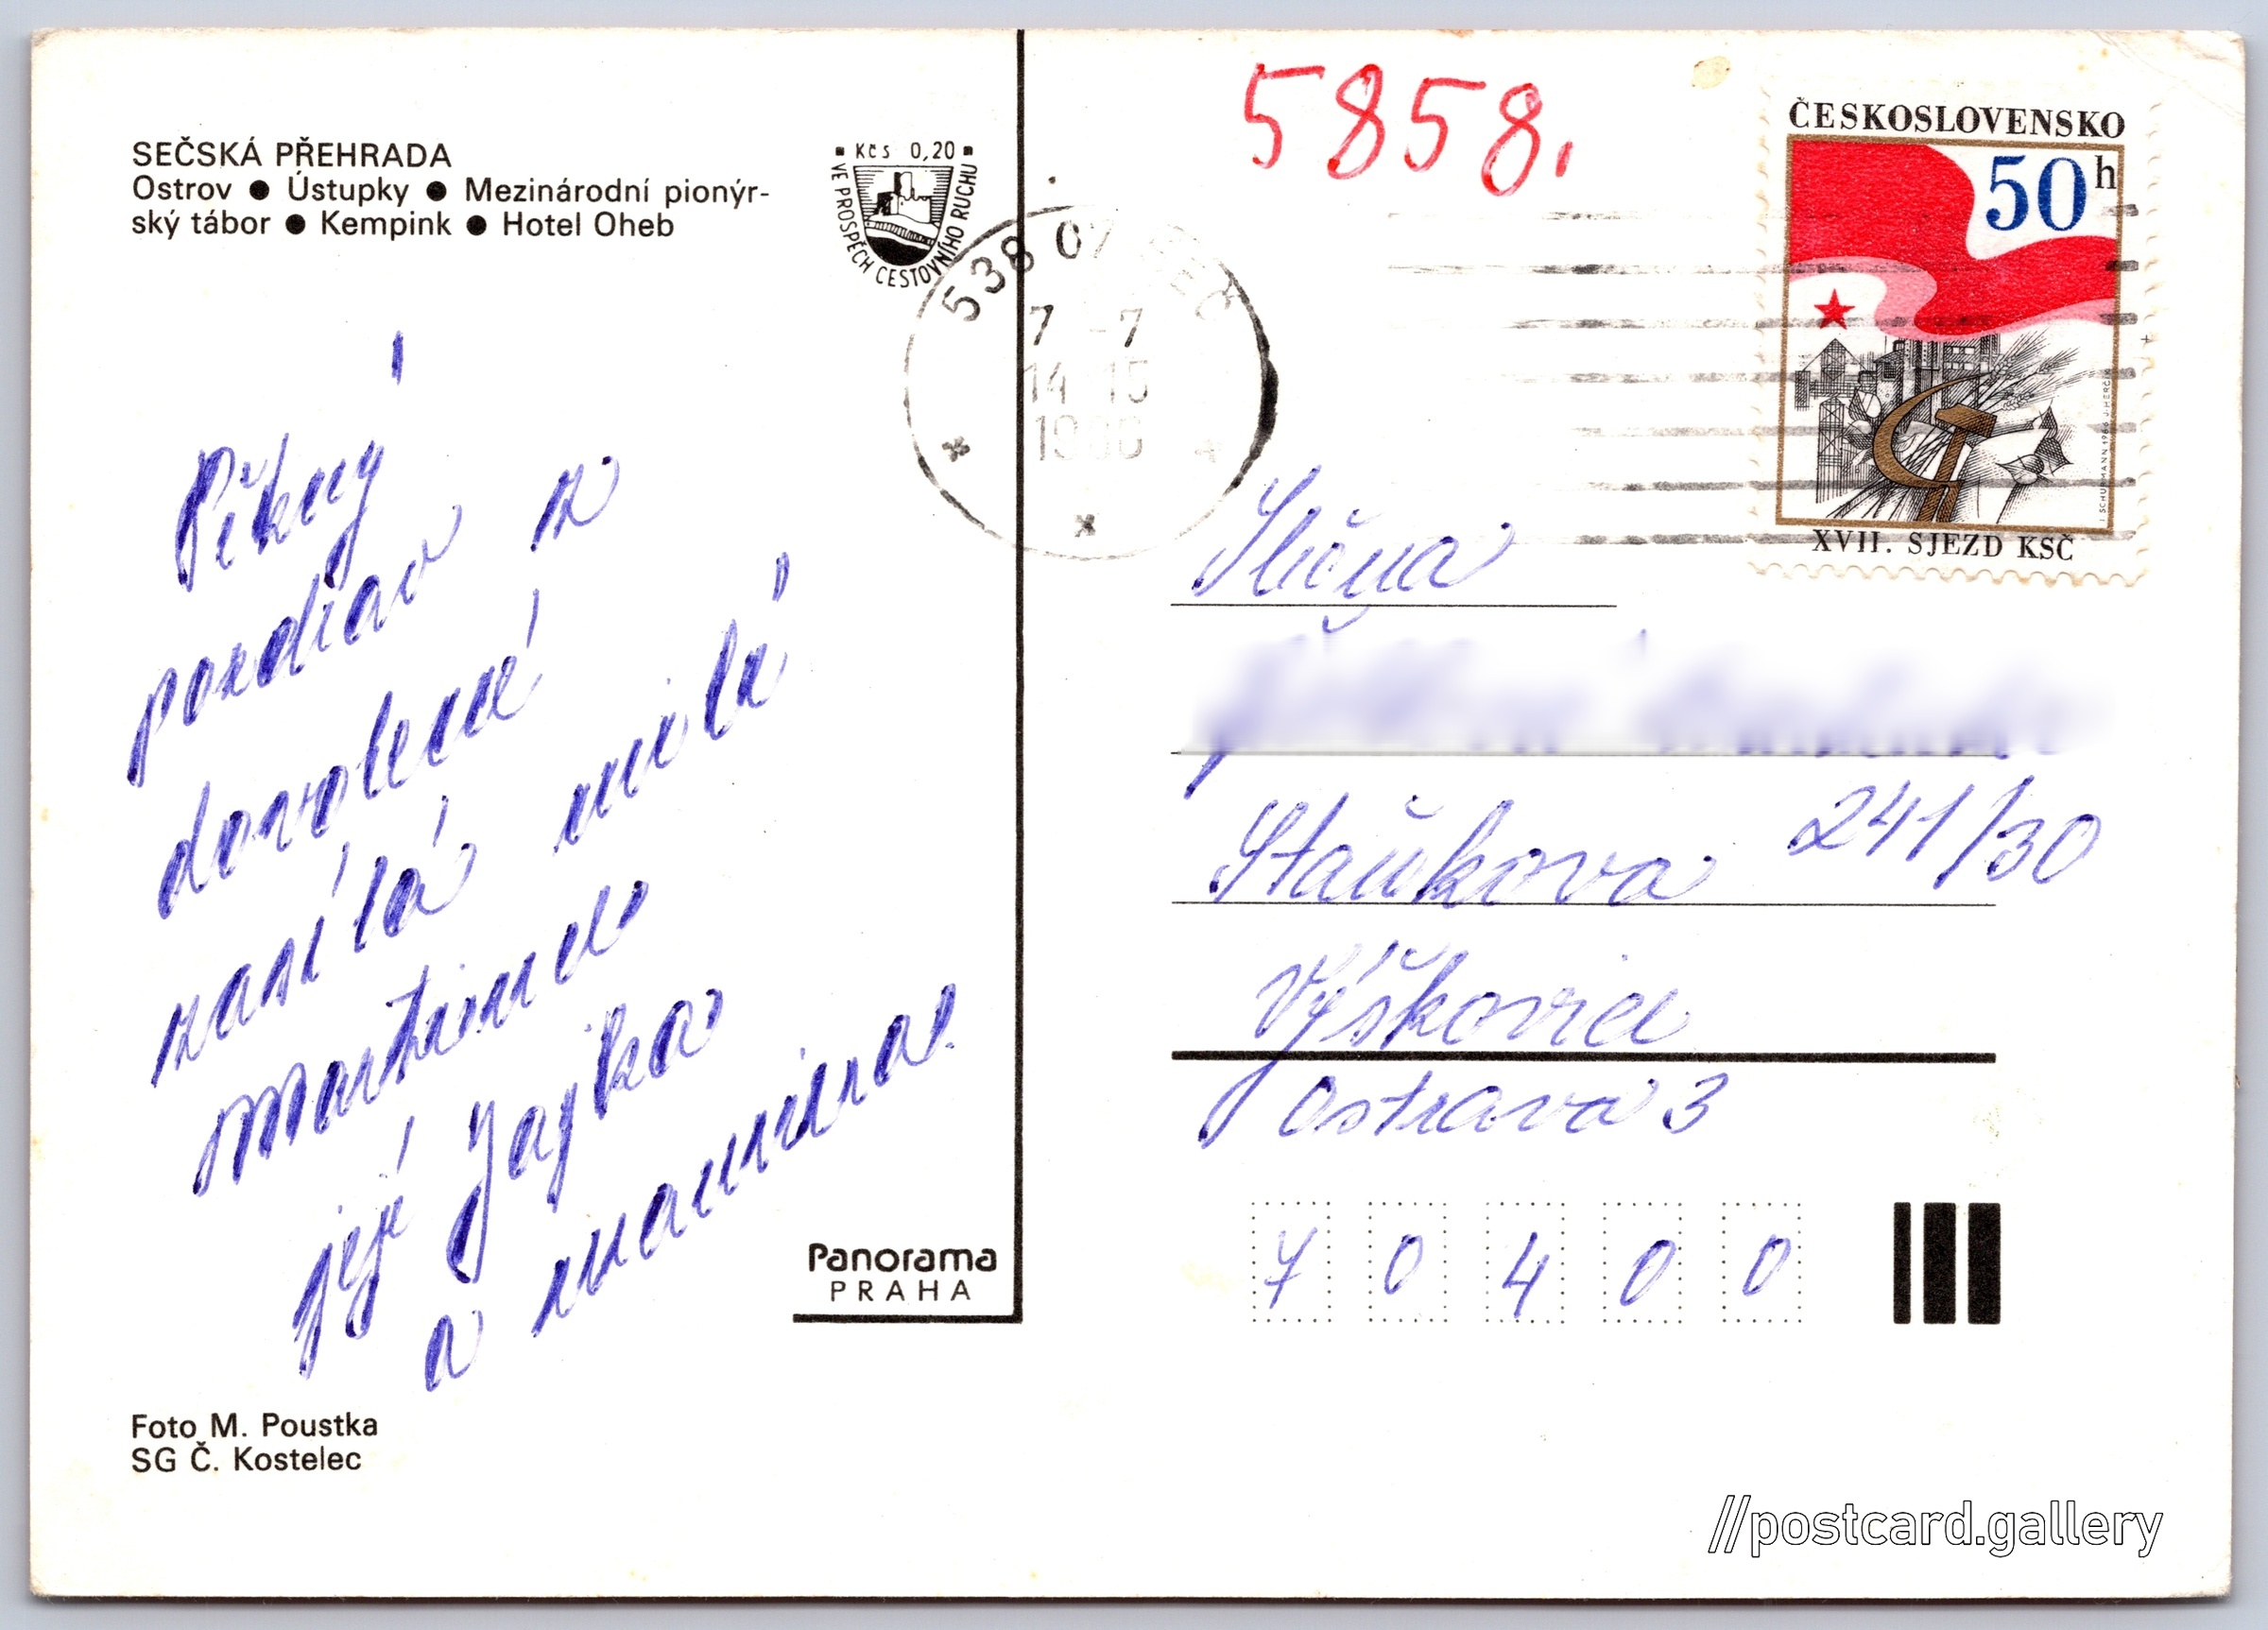 SEČSKÁ PŘEHRADA
Ostrov ● Ústupky ● Mezinárodní pionýr-
ský tábor ● Kempink ● Hotel Oheb
Kčs 0,20
VE PROSPĚCH CESTOVNÍHO RUCHU
5858.
ČESKOSLOVENSKO
50h
XVII. SJEZD KSČ
538 07 SEČ
7 -7
14-15
Pěkný
pozdrav z
dovolené
zasílá milé
Martince
její Jajka
a mamina.
Slečna
Staňkova 241/30
Výškovice
Ostrava 3
70400
Panorama
PRAHA
Foto M. Poustka
SG Č. Kostelec
//postcard.gallery